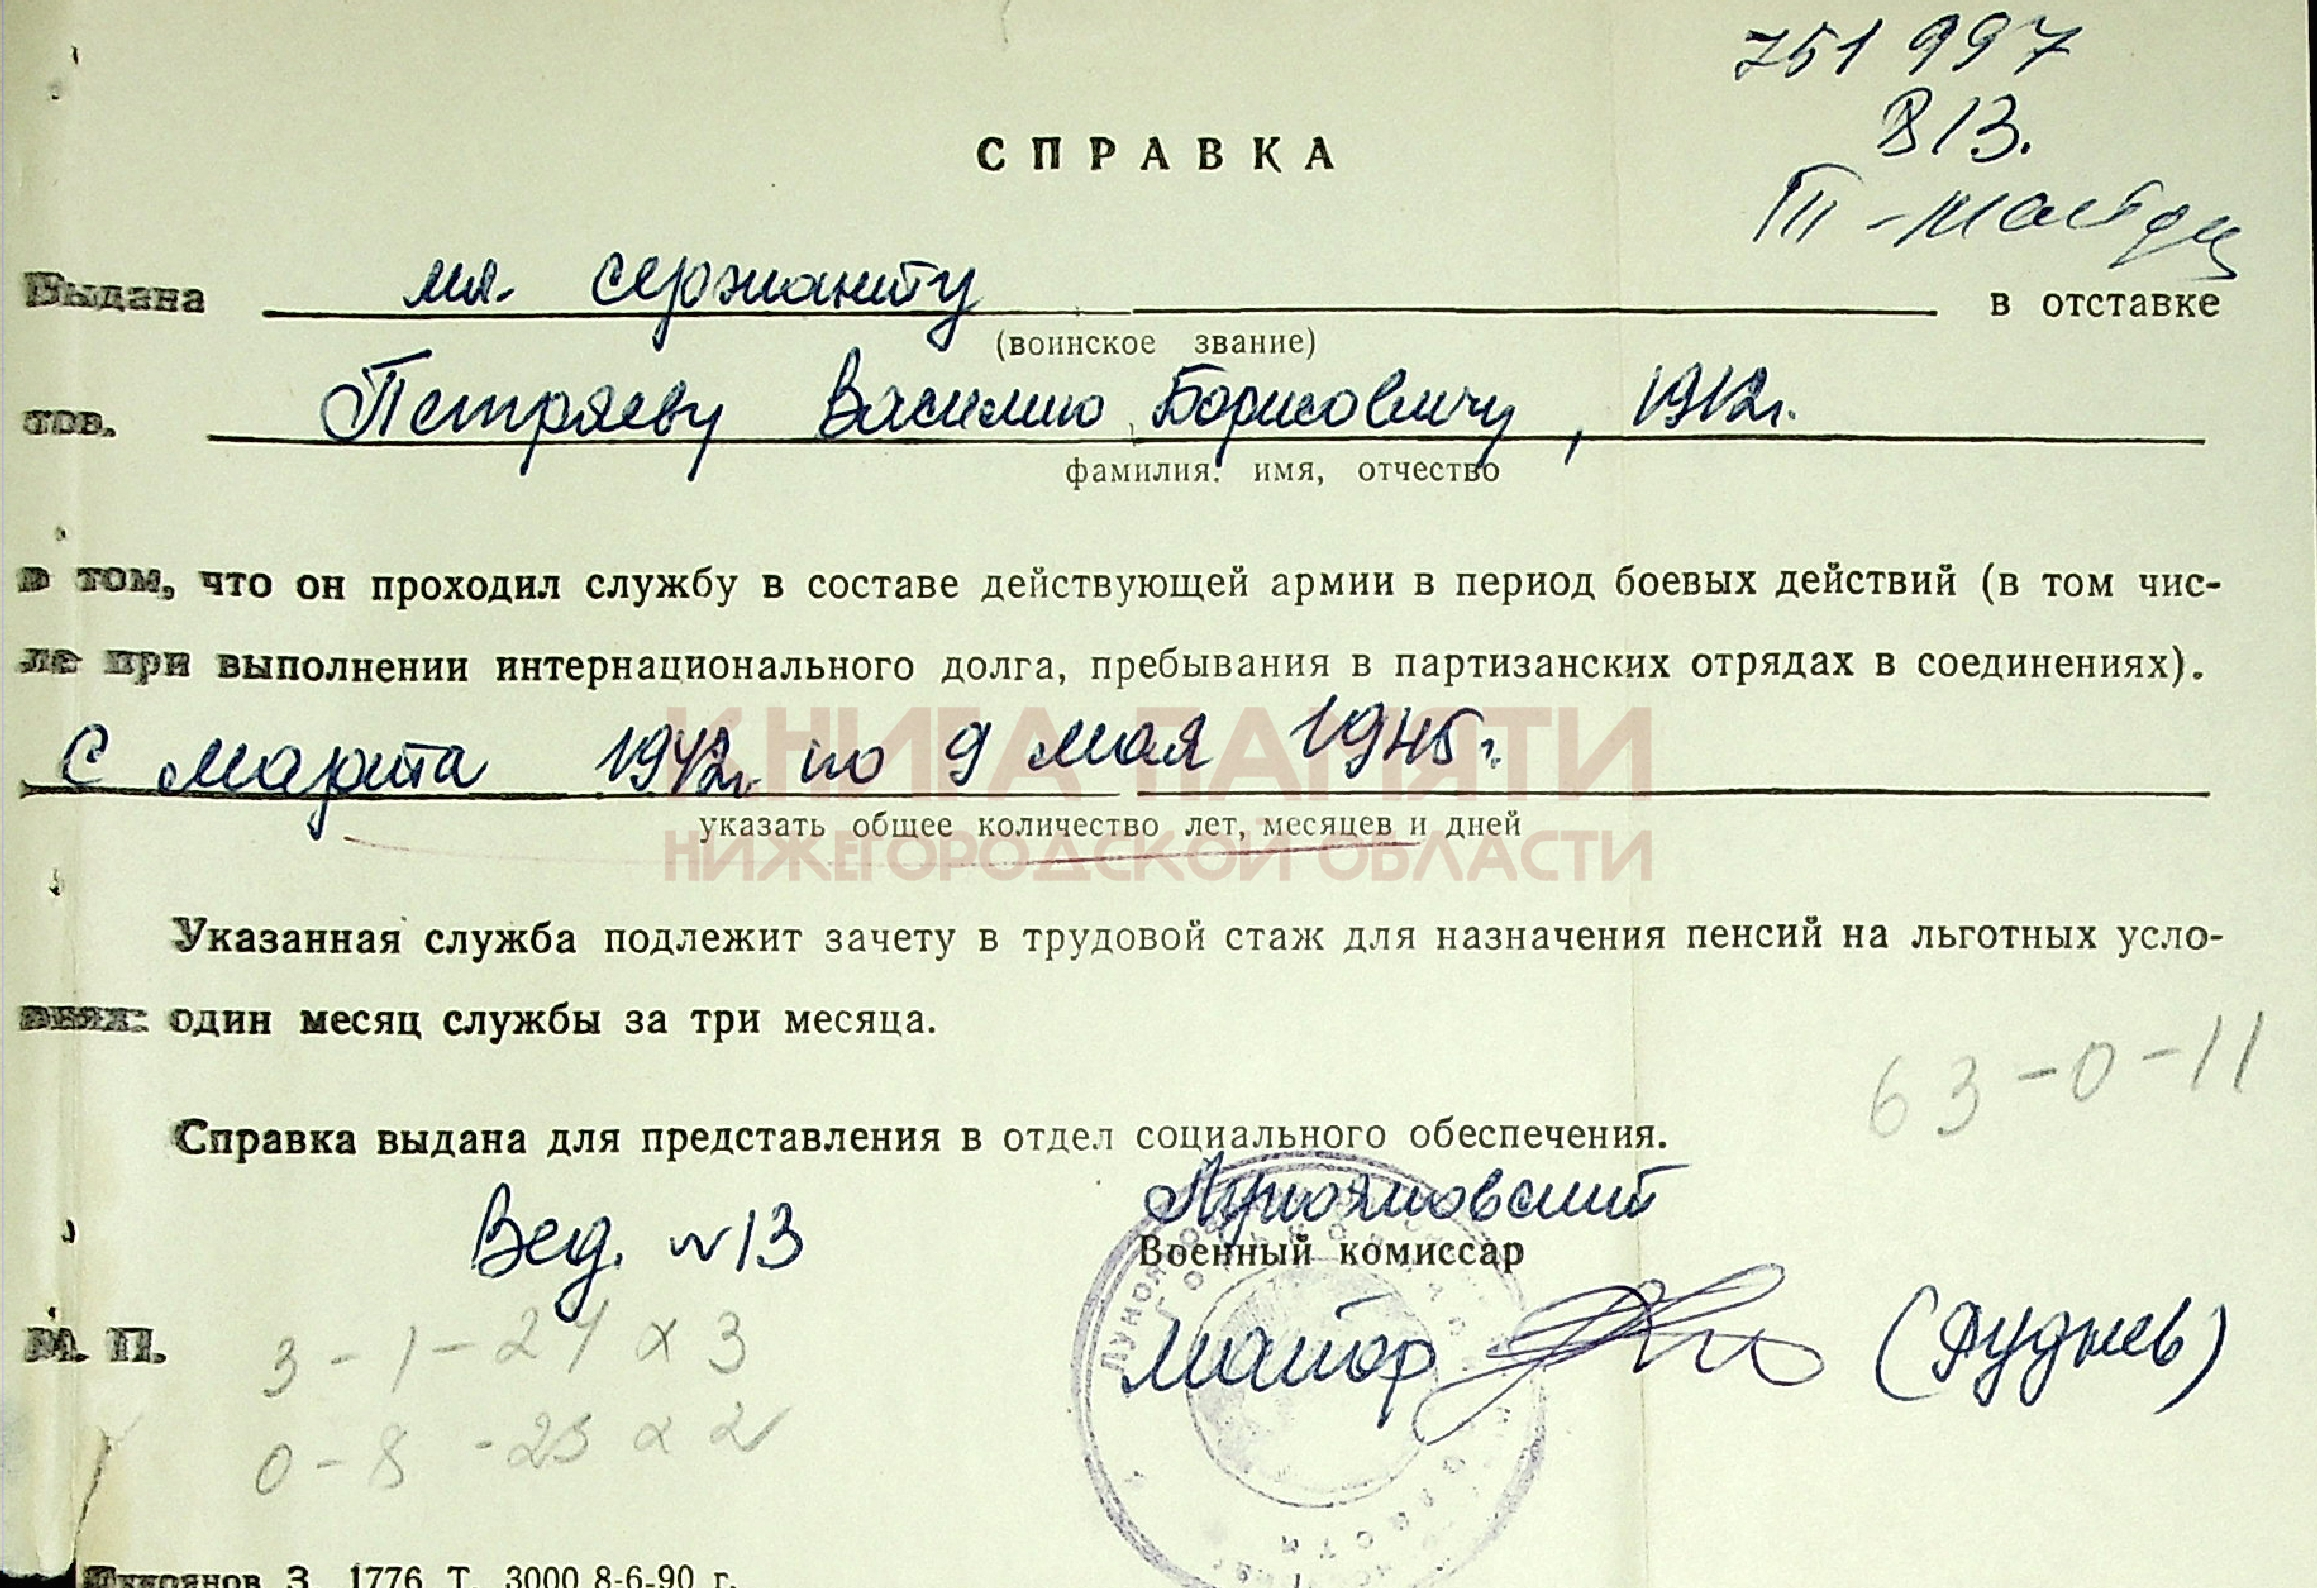 751997
813.
С П Р А В К А
III -
Выдана мл. сержанту в отставке
(воинское звание)
тов. Петряеву Василию Борисовичу, 1912г.
фамилия. имя, отчество
в том, что он проходил службу в составе действующей армии в период боевых действий (в том чис-
ле при выполнении интернационального долга, пребывания в партизанских отрядах в соединениях).
С марта 1942г. по 9 мая 1945г.
КНИГА ПАМЯТИ
указать общее количество лет, месяцев и дней
НИЖЕГОРОДСКОЙ ОБЛАСТИ
Указанная служба подлежит зачету в трудовой стаж для назначения пенсий на льготных усло-
виях: один месяц службы за три месяца.
63-0-11
Справка выдана для представления в отдел социального обеспечения.
Вед. №13
Лукояновский
Военный комиссар
М. П.
майор (Руднев)
3-1-24 х 3
0-8-23 х 2
Лукоянов З. 1776 Т. 3000 8-6-90 г.